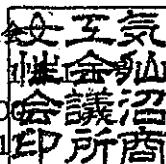 気仙沼商
工会議所
女性会印